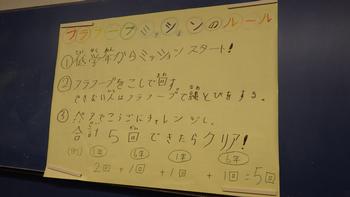 フラフープミッションのルール
①低学年からミッションスタート!
②フラフープをこしで回す
できない人はフラフープで縄とびをする。
③ペアでこうごにチャレンジし、
合計5回できたらクリア!
(例) 5年 6年 1年 6年
2回 + 1回 + 1回 + 1回 = 5回